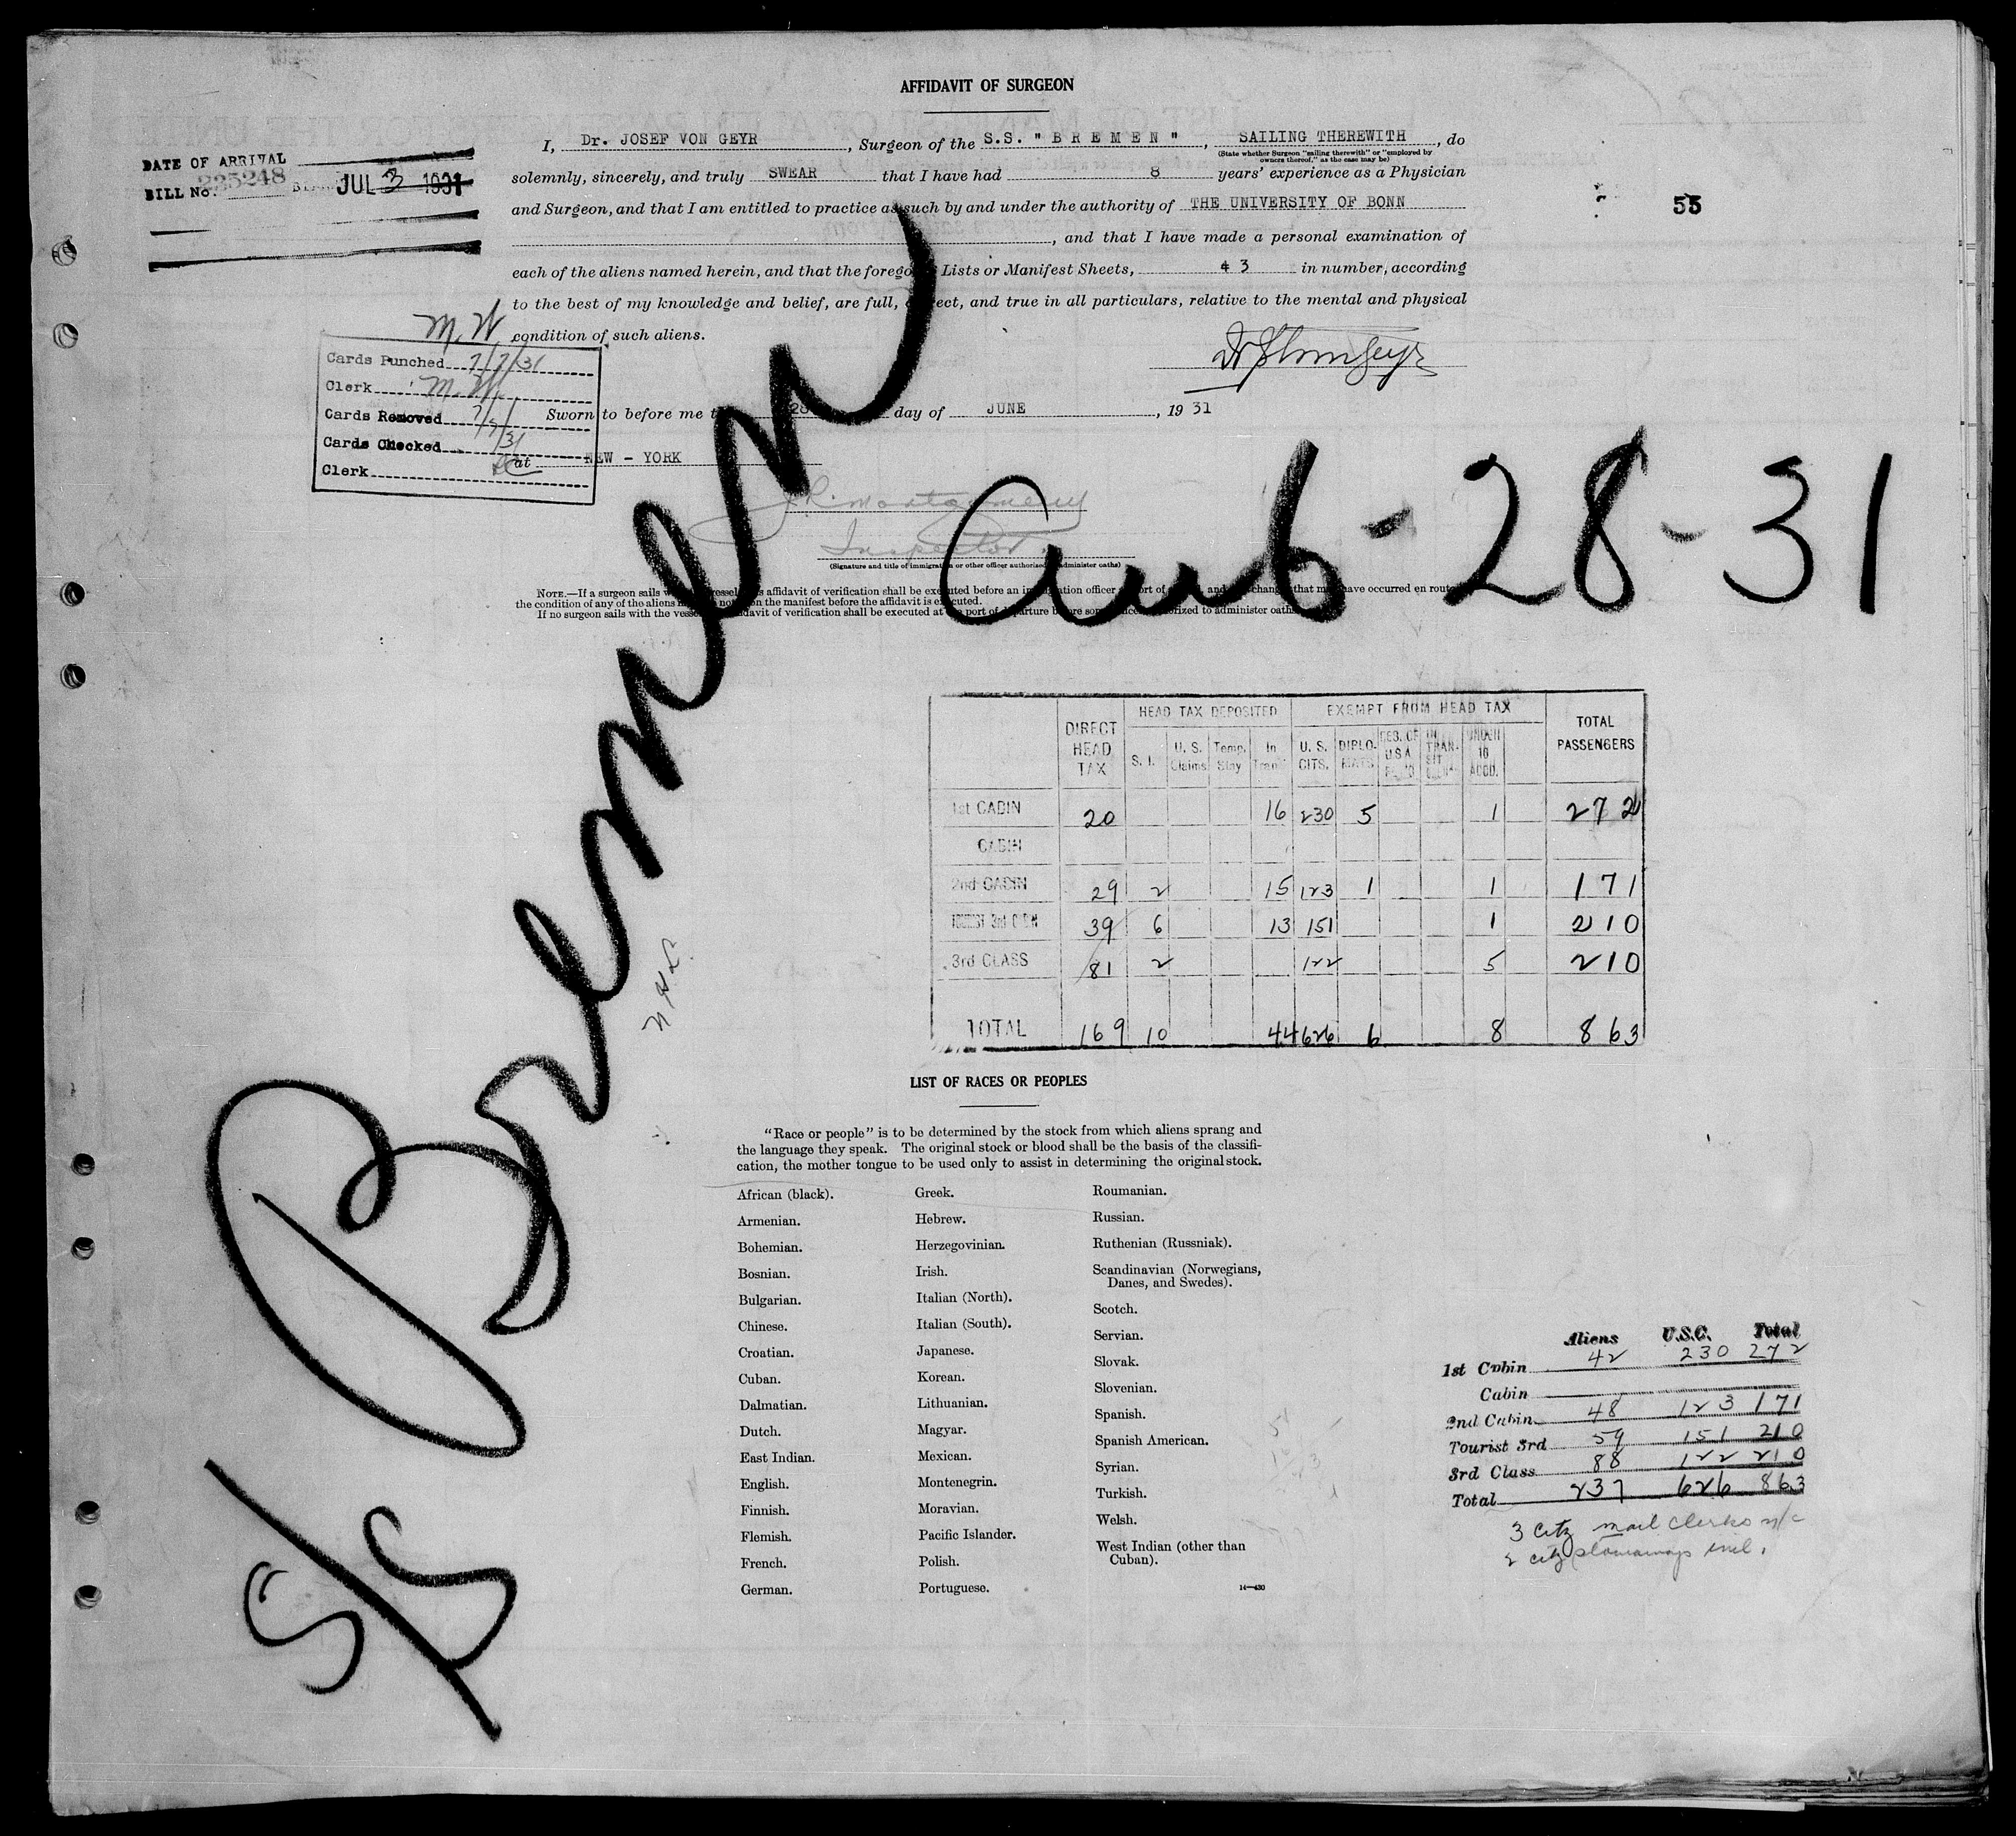 AFFIDAVIT OF SURGEON
I, Dr. JOSEF VON GEYR, Surgeon of the S.S. "BREMEN", SAILING THEREWITH, do
(State whether Surgeon "sailing therewith" or "employed by
owners thereof," as the case may be)
solemnly, sincerely, and truly SWEAR that I have had 8 years' experience as a Physician
and Surgeon, and that I am entitled to practice as such by and under the authority of THE UNIVERSITY OF BONN
, and that I have made a personal examination of
each of the aliens named herein, and that the forego Lists or Manifest Sheets, 43 in number, according
to the best of my knowledge and belief, are full, ect, and true in all particulars, relative to the mental and physical
condition of such aliens.
DATE OF ARRIVAL
BILL No. 225248 JUL 3 1931
55
M.W.
Cards Punched 7/7/31
Clerk M.W.
Cards Removed 7/7/31
Cards Checked
Clerk
Sworn to before me t 28 day of JUNE, 1931
at NEW - YORK
J.R. Montgomery
Inspector
(Signature and title of immigration or other officer authorized administer oaths)
NOTE.—If a surgeon sails w vessel s affidavit of verification shall be executed before an im ation officer port of and change that may have occurred en rout
the condition of any of the aliens no on the manifest before the affidavit is executed.
If no surgeon sails with the vesse davit of verification shall be executed at port of departure before som ice orized to administer oath
S/S Bremen
Arr 6-28-31
DIRECT HEAD TAX HEAD TAX DEPOSITED EXEMPT FROM HEAD TAX TOTAL PASSENGERS
S. I. U. S. Claims Temp. Stay In Transit U. S. CITS. DIPLOMATS RES. OF U.S.A. IN TRANSIT UNDER 16 ACCD.
1st CABIN 20 16 230 5 1 272
CABIN
2nd CABIN 29 2 15 123 1 1 171
TOURIST 3rd CABIN 39 6 13 151 1 210
3rd CLASS 81 2 122 5 210
TOTAL 169 10 44 626 6 8 863
LIST OF RACES OR PEOPLES
"Race or people" is to be determined by the stock from which aliens sprang and
the language they speak. The original stock or blood shall be the basis of the classifi-
cation, the mother tongue to be used only to assist in determining the original stock.
African (black).
Armenian.
Bohemian.
Bosnian.
Bulgarian.
Chinese.
Croatian.
Cuban.
Dalmatian.
Dutch.
East Indian.
English.
Finnish.
Flemish.
French.
German.
Greek.
Hebrew.
Herzegovinian.
Irish.
Italian (North).
Italian (South).
Japanese.
Korean.
Lithuanian.
Magyar.
Mexican.
Montenegrin.
Moravian.
Pacific Islander.
Polish.
Portuguese.
Roumanian.
Russian.
Ruthenian (Russniak).
Scandinavian (Norwegians,
Danes, and Swedes).
Scotch.
Servian.
Slovak.
Slovenian.
Spanish.
Spanish American.
Syrian.
Turkish.
Welsh.
West Indian (other than
Cuban).
14—430
Aliens U.S.C. Total
1st Cabin 42 230 272
Cabin
2nd Cabin 48 123 171
Tourist 3rd 59 151 210
3rd Class 88 122 210
Total 237 626 863
3 Citz mail clerks n/c
2 citz stowaways incl.